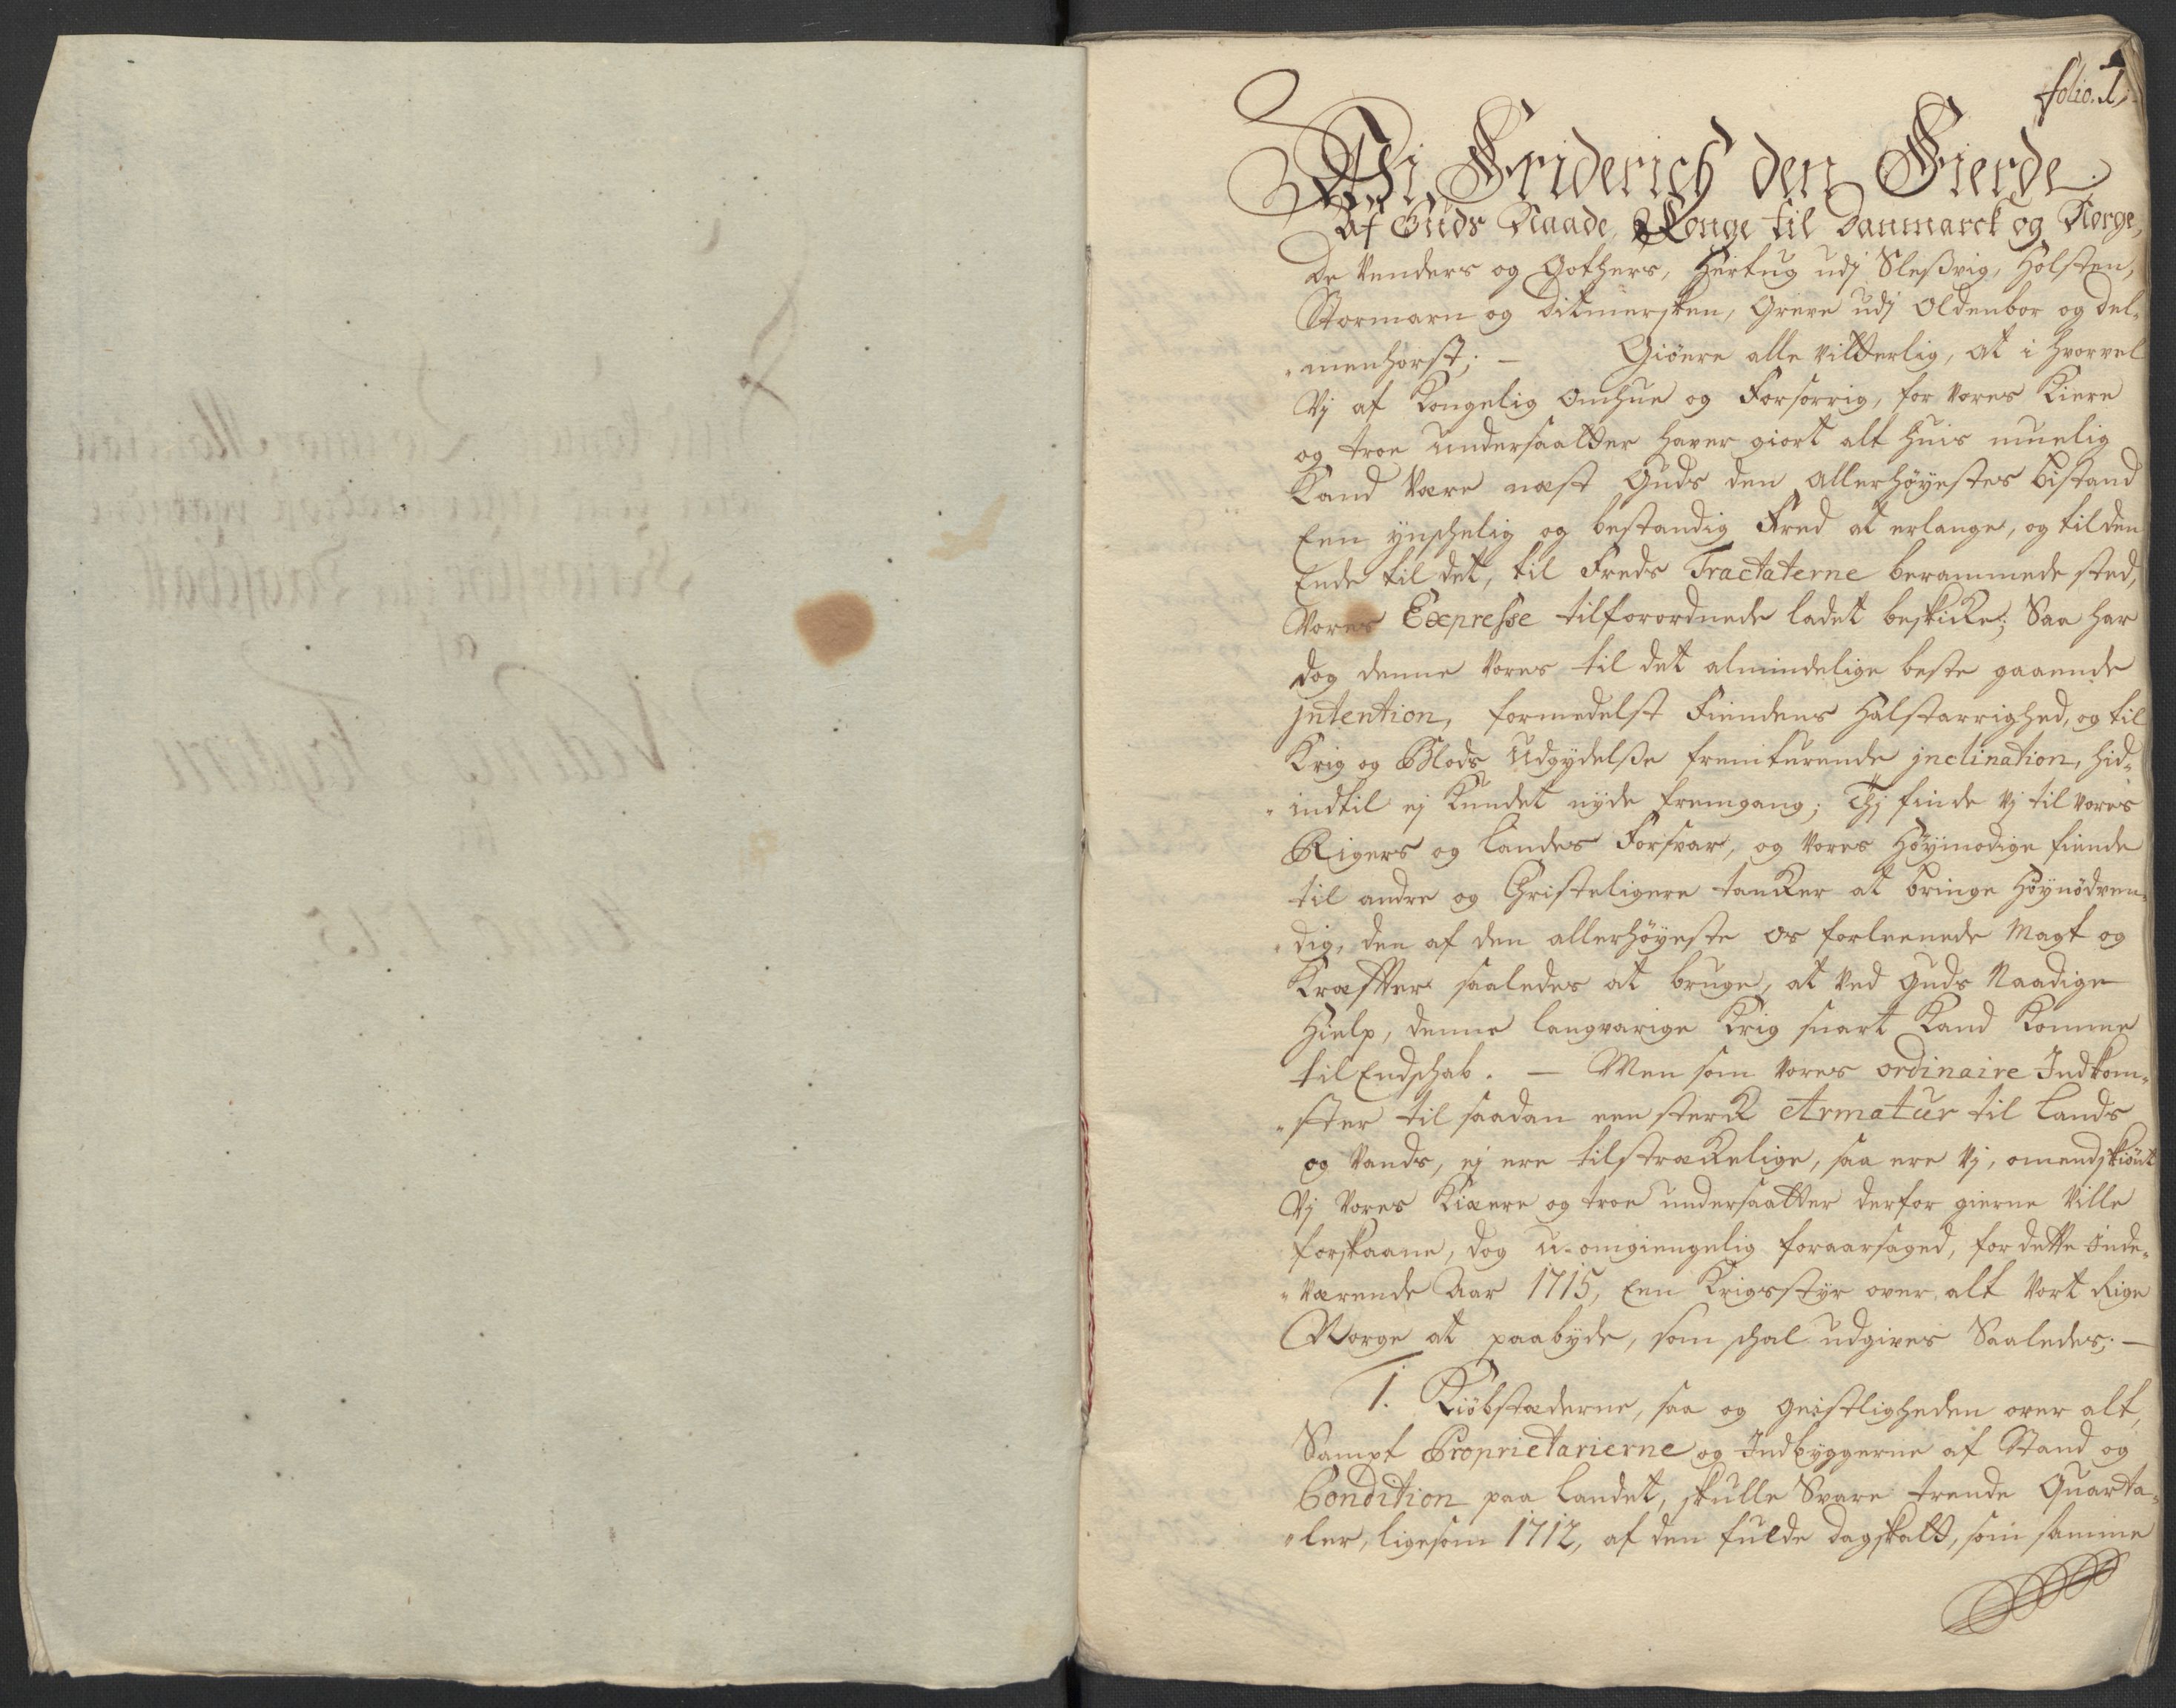 folio. 1,
Wi Friderich den Fierde
Af Guds Naade, Konge til Danmarck og Norge,
De Venders og Gothers, Hertug udj Sleßvig, Holsten,
Stormarn og Ditmersken, Greve udj Oldenbor og Del„
„menhorst; — Giöere alle vitterlig, at i hvorvel
Vj af Kongelig Omhue og Forsorrig, for Vores Kiere
og troe Undersaatter haver giort alt huis muelig
Kand være nest Guds den Allerhöyestes Bistand
Een ynschelig og bestandig Fred at erlange, og til den
Ende til det, til Freds Tractaterne berammede sted,
Vores Expresse tilforordnede ladet beskicke; Saa har
dog denne Vores til det almindelige beste gaaende
jntention, formedelst Fiendens Halstarrighed, og til
Krig og Blods Udgydelße fremturende jnclination, hid„
„indtil ej Kundet nyde fremgang; Thj finde Vj til Vores
Rigers og Landes Forsvar, og Vores Höymodige fiende
til andre og Christeligere tancker at bringe höynödven„
„dig, den af den allerhöyeste os forleenede Magt og
Kræffter saaledes at bruge, at Ved Guds Naadige
Hielp, denne langvarige Krig snart Kand Komme
til Endschab. — Men som Vores ordinaire Indkom„
„ster til saadan een sterck Armatur til Lands
og Vands, ej ere tilstreckelige, saa ere Vj, omendskiönt
Vj Vores Kiære og troe undersaatter derfor gierne Ville
forskaane, dog u-omgiengelig foraarsaged, for dette Inde„
„Værende Aar 1715, Een Krigsstyr over alt Vort Rige
Norge at paabyde, som schal udgives Saaledes; —
1. Kiöbstæderne, saa og Geistligheden over alt,
Sampt Proprietarierne og Indbyggerne af Stand og
Condition paa Landet, skulle Svare trende Quarta„
„ler, ligesom 1712, af den fulde Dagskatt, som samme